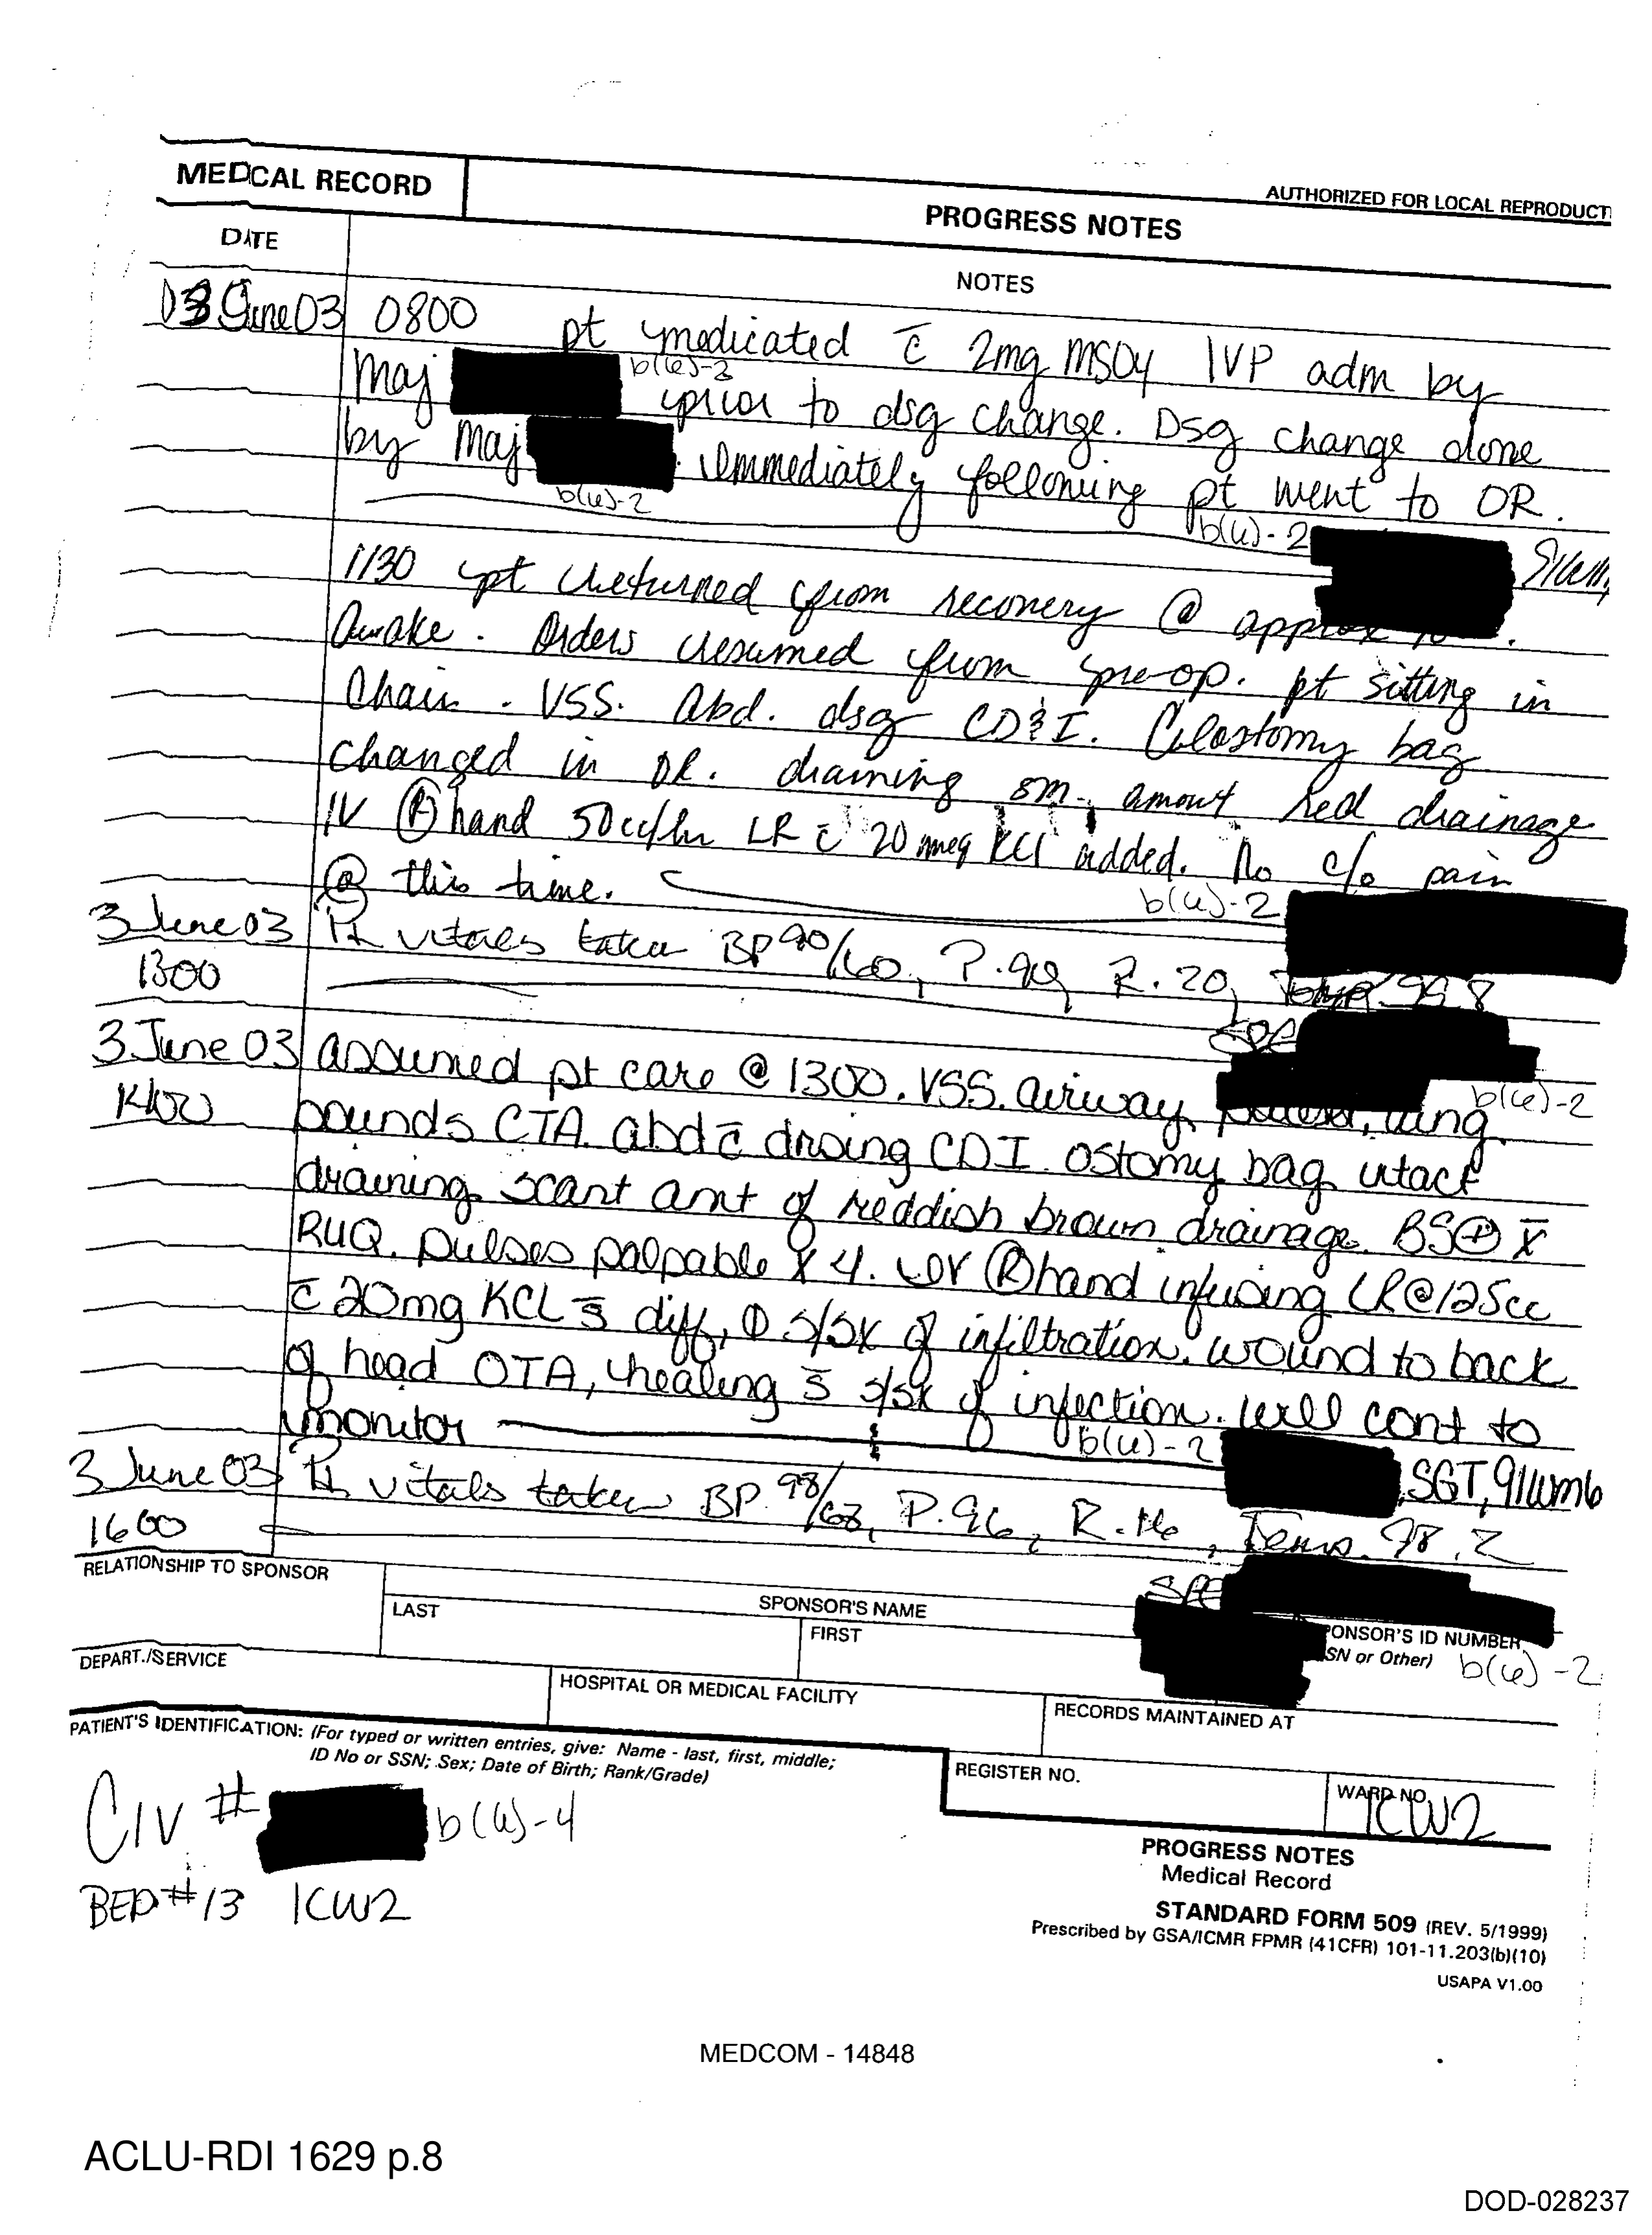 MEDCAL RECORD
PROGRESS NOTES
AUTHORIZED FOR LOCAL REPRODUCT
DATE
NOTES
03 June 03 0800 pt medicated c̄ 2mg MSO4 IVP adm by
Maj b(6)-2 prior to dsg change. Dsg change done
by Maj . Immediately following pt went to OR.
b(6)-2
b(6)-2
1130 pt returned from recovery @ approx
Awake. Orders resumed from pre-op. pt sitting in
Chair. VSS. Abd. dsg CD&I. Colostomy bag
changed in OR. draining sm. amount red drainage
IV Ⓡ hand 50cc/hr LR c̄ 20 meq KCl added. No c/o pain
@ this time.
b(6)-2
3 June 03 Pt vitals taken BP 90/60, P. R. 20, Temp 99.8
1300
SPC
3 June 03 assumed pt care @ 1300. VSS. airway patent, lung
1400 sounds CTA. abd c̄ drsing CDI. ostomy bag intact
b(6)-2
draining scant amt of reddish brown drainage. BS⊕ x
RUQ. pulses palpable x 4. Ⓡ hand infusing LR @ 125cc
c̄ 20mg KCL s̄ diff, s/sx of infiltration. wound to back
of head OTA, healing s̄ s/sx of infection. will cont to
monitor
b(6)-2
SGT, 91WM6
3 June 03 Pt vitals taken BP. 98/68, P. 96, R. 16, Temp. 98.2
1600
SPC
RELATIONSHIP TO SPONSOR
SPONSOR'S NAME
LAST
FIRST
PONSOR'S ID NUMBER
SN or Other)
b(6)-2
DEPART./SERVICE
HOSPITAL OR MEDICAL FACILITY
RECORDS MAINTAINED AT
PATIENT'S IDENTIFICATION: (For typed or written entries, give: Name - last, first, middle;
ID No or SSN; Sex; Date of Birth; Rank/Grade)
REGISTER NO.
WARD NO.
ICW2
CIV # b(6)-4
BED #13 ICW2
PROGRESS NOTES
Medical Record
STANDARD FORM 509 (REV. 5/1999)
Prescribed by GSA/ICMR FPMR (41CFR) 101-11.203(b)(10)
USAPA V1.00
MEDCOM - 14848
ACLU-RDI 1629 p.8
DOD-028237